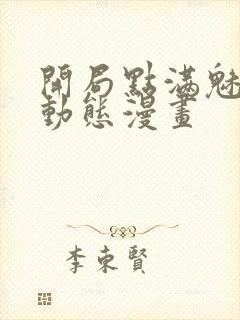 開局點滿魅
動態漫畫
李東賢